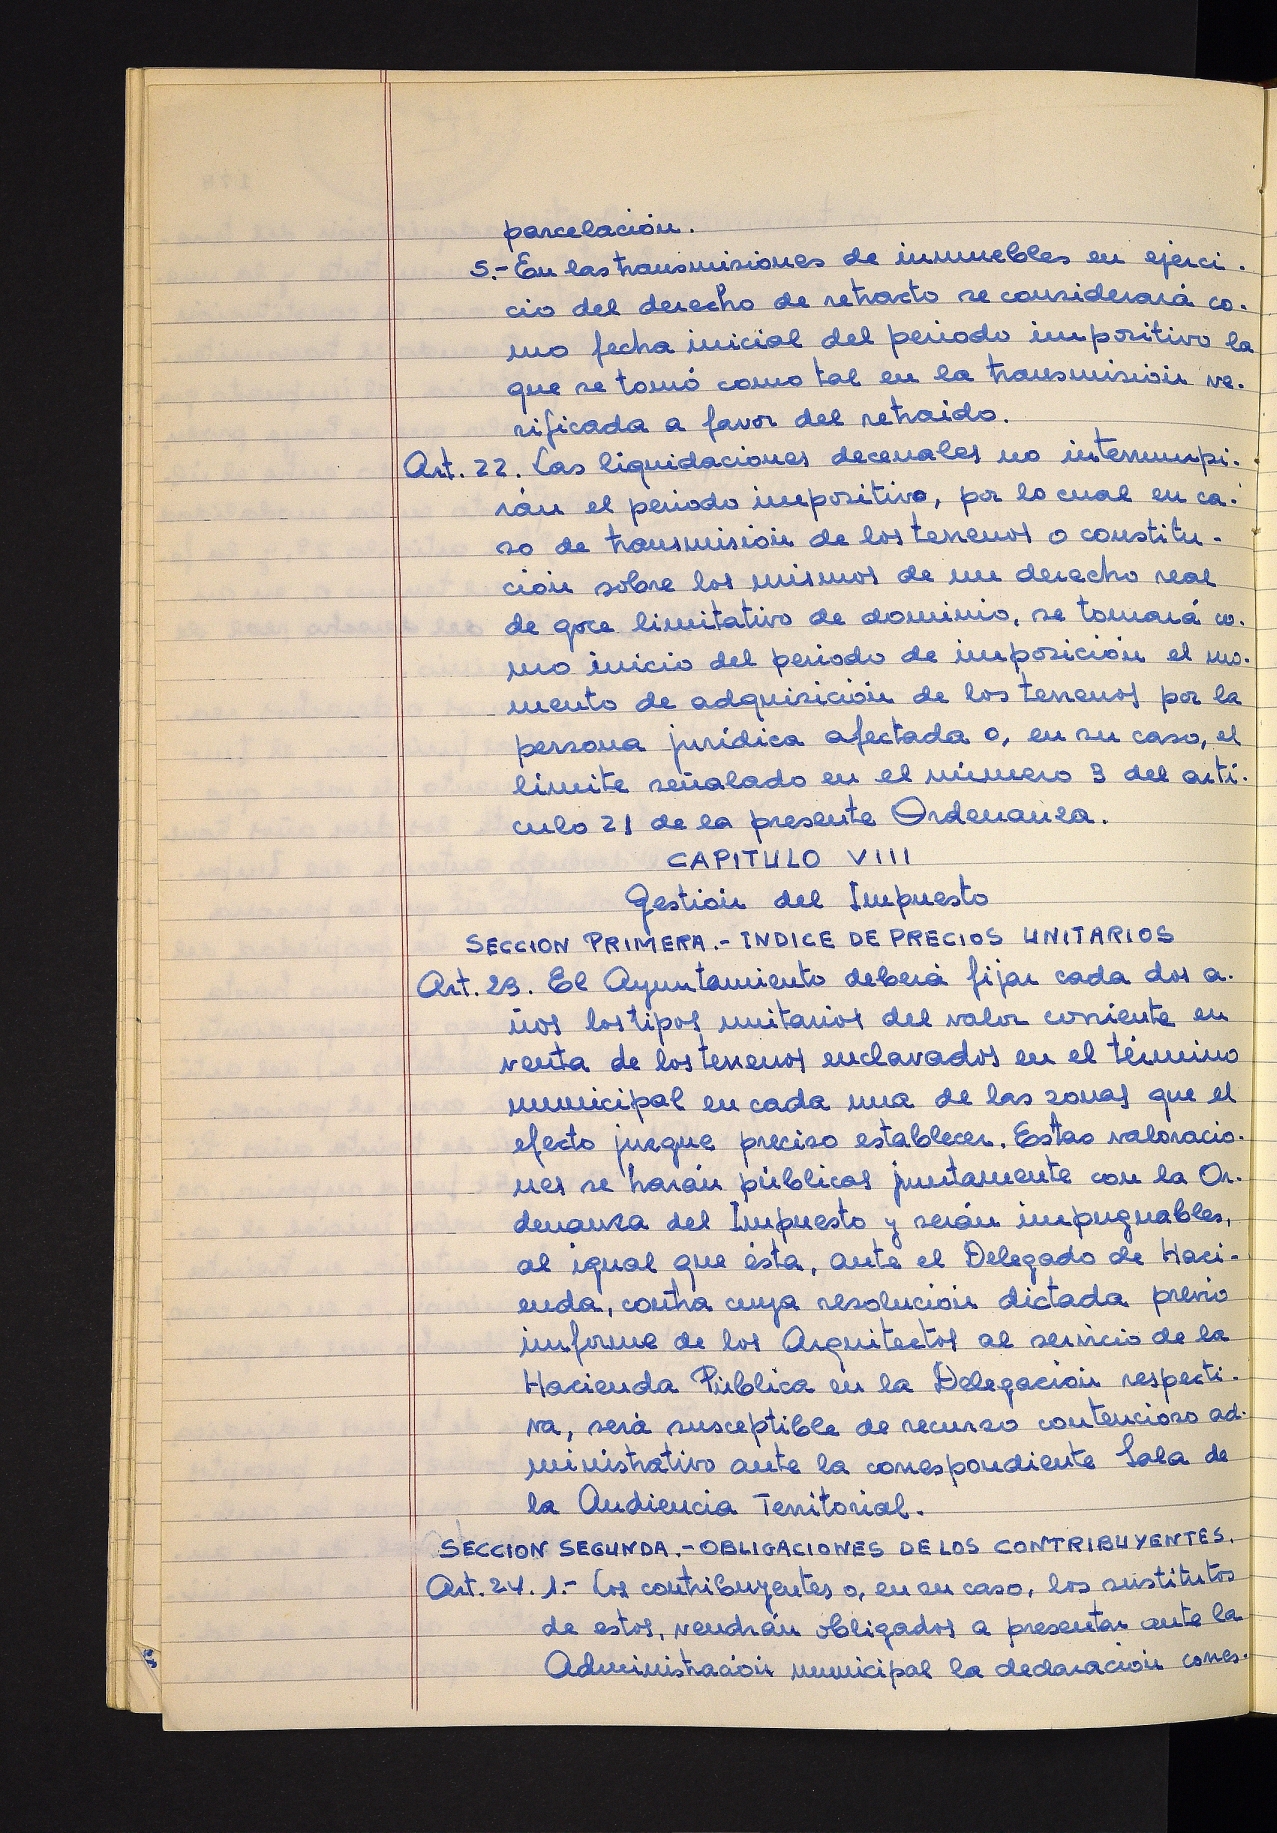 parcelación.
5.- En las transmisiones de inmuebles en ejerci-
cio del derecho de retracto se considerará co-
mo fecha inicial del periodo impositivo la
que se tomó como tal en la transmisión ve-
rificada a favor del retraido.
Art. 22. Las liquidaciones decenales no interrumpi-
rán el periodo impositivo, por lo cual en ca-
so de transmisión de los terrenos o constitu-
ción sobre los mismos de un derecho real
de goce limitativo de dominio, se tomará co-
mo inicio del periodo de imposición el mo-
mento de adquisición de los terrenos por la
persona jurídica afectada o, en su caso, el
límite señalado en el número 3 del artí-
culo 21 de la presente Ordenanza.
CAPITULO VIII
Gestión del Impuesto
SECCION PRIMERA.- INDICE DE PRECIOS UNITARIOS
Art. 23. El Ayuntamiento deberá fijar cada dos a-
ños los tipos unitarios del valor corriente en
venta de los terrenos enclavados en el término
municipal en cada una de las zonas que el
efecto juzgue preciso establecer. Estas valoracio-
nes se harán públicas juntamente con la Or-
denanza del Impuesto y serán impugnables,
al igual que ésta, ante el Delegado de Haci-
enda, contra cuya resolución dictada previo
informe de los Arquitectos al servicio de la
Hacienda Pública en la Delegación respecti-
va, será susceptible de recurso contencioso ad-
ministrativo ante la correspondiente Sala de
la Audiencia Territorial.
SECCION SEGUNDA.- OBLIGACIONES DE LOS CONTRIBUYENTES.
Art. 24. 1.- Los contribuyentes o, en su caso, los sustitutos
de estos, vendrán obligados a presentar ante la
Administración municipal la declaración corres-